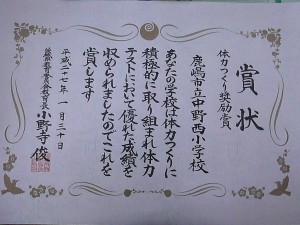 賞状
体力つくり奨励賞
鹿嶋市立中野西小学校
あなたの学校は体力つくりに
積極的に取り組まれ体力
テストにおいて優れた成績を
収められましたのでこれを
賞します
平成二十七年一月三十日
教育委員会教育長 小野寺俊